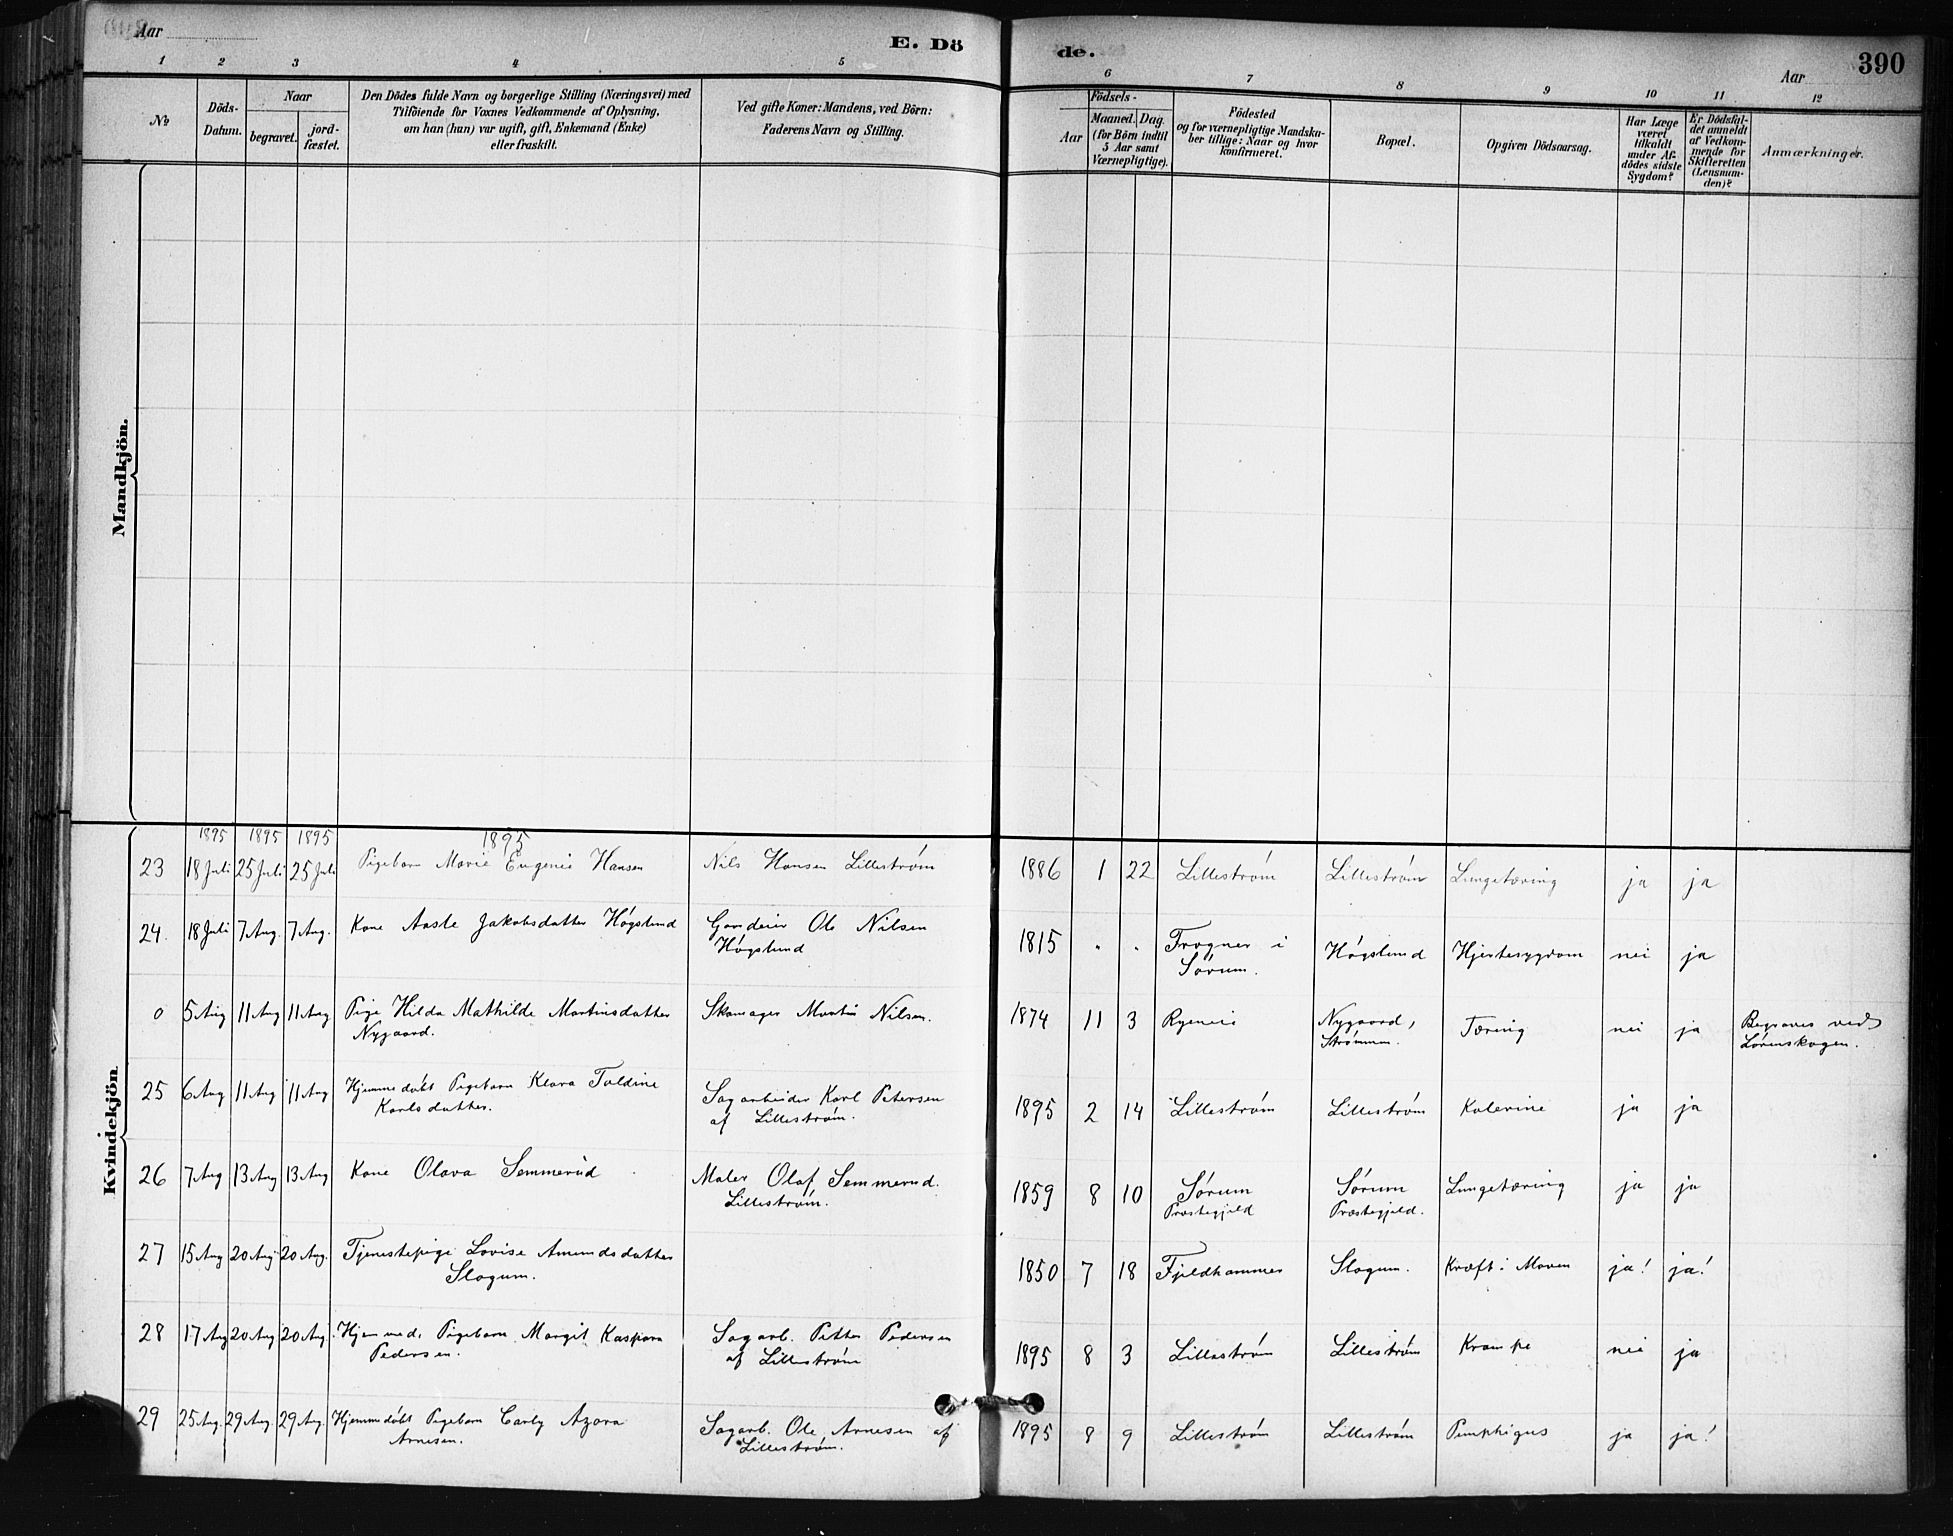 Aar
E. Dö
de.
Aar
390
1 2 3 4 5 6 7 8 9 10 11 12
№
Döds-
Datum.
Naar
begravet.
jord-
fæstet.
Den Dödes fulde Navn og borgerlige Stilling (Næringsvei) med
Tilföiende for Voxnes Vedkommende af Oplysning,
om han (hun) var ugift, gift, Enkemand (Enke)
eller fraskilt.
Ved gifte Koner: Mandens, ved Börn:
Faderens Navn og Stilling.
Födsels-
Aar
Maaned. Dag.
(for Börn indtil
5 Aar samt
Værnepligtige).
Födested
og for værnepligtige Mandska-
ber tillige: Naar og hvor
konfirmeret.
Bopæl.
Opgiven Dödsaarsag.
Har Læge
været
tilkaldt
under Af-
dödes sidste
Sygdom?
Er Dödsfal-
det anmeldt
af Vedkom-
mende for
Skifteretten
(Lensman-
den)?
Anmærkninger.
Mandkjön.
Kvindekjön
1895 1895 1895 1895
23 18 Juli 25 Juli 25 Juli Pigebarn Marie Eugenie Hansen Nils Hansen Lillestrøm 1886 1 22 Lillestrøm Lillestrøm Lungetæring ja ja
24. 18 Juli 7 Aug. 7 Aug. Kone Aaste Jakobsdatter Høgslund Gaardeier Ole Nilsen
Høgslund 1815 " " Frogner i
Sørum. Høgslund Hjertesygdom nei ja
0 5 Aug 11 Aug 11 Aug Pige Hilda Mathilde Martinsdatter
Nygaard. Skomager Martin Nilsen. 1874 11 3 Nygaard,
Strømmen. Tæring nei ja Begraves ved
Lørenskogen.
25 6 Aug 11 Aug 11 Aug Hjemmedøbt Pigebarn Klara
Karlsdatter. Sagarbeider Karl Petersen
af Lillestrøm. 1895 2 14 Lillestrøm Lillestrøm Kolerine ja ja
26 7 Aug 13 Aug 13 Aug Kone Olava Semmerud Maler Olaf Semmerud.
Lillestrøm. 1859 8 10 Sørum
Præstegjeld Sørum
Præstegjeld. Lungetæring ja ja
27 15 Aug 20 Aug 20 Aug. Tjenestepige Lovise Amundsdatter
Slogum. 1850 7 18 Fjeldhammer Slogum. Kræft i Maven ja! ja!
28 17 Aug 20 Aug 20 Aug. Hjemmed. Pigebarn Margit Kaspara
Pedersen. Sagarb. Petter Pedersen
af Lillestrøm 1895 8 3 Lillestrøm Lillestrøm Krampe nei ja
29 25 Aug. 29 Aug. 29 Aug. Hjemmedøbt Pigebarn Carly Azora
Arnesen. Sagarb. Ole Arnesen af
Lillestrøm. 1895 8 9 Lillestrøm Lillestrøm Pemphigus ja ja!